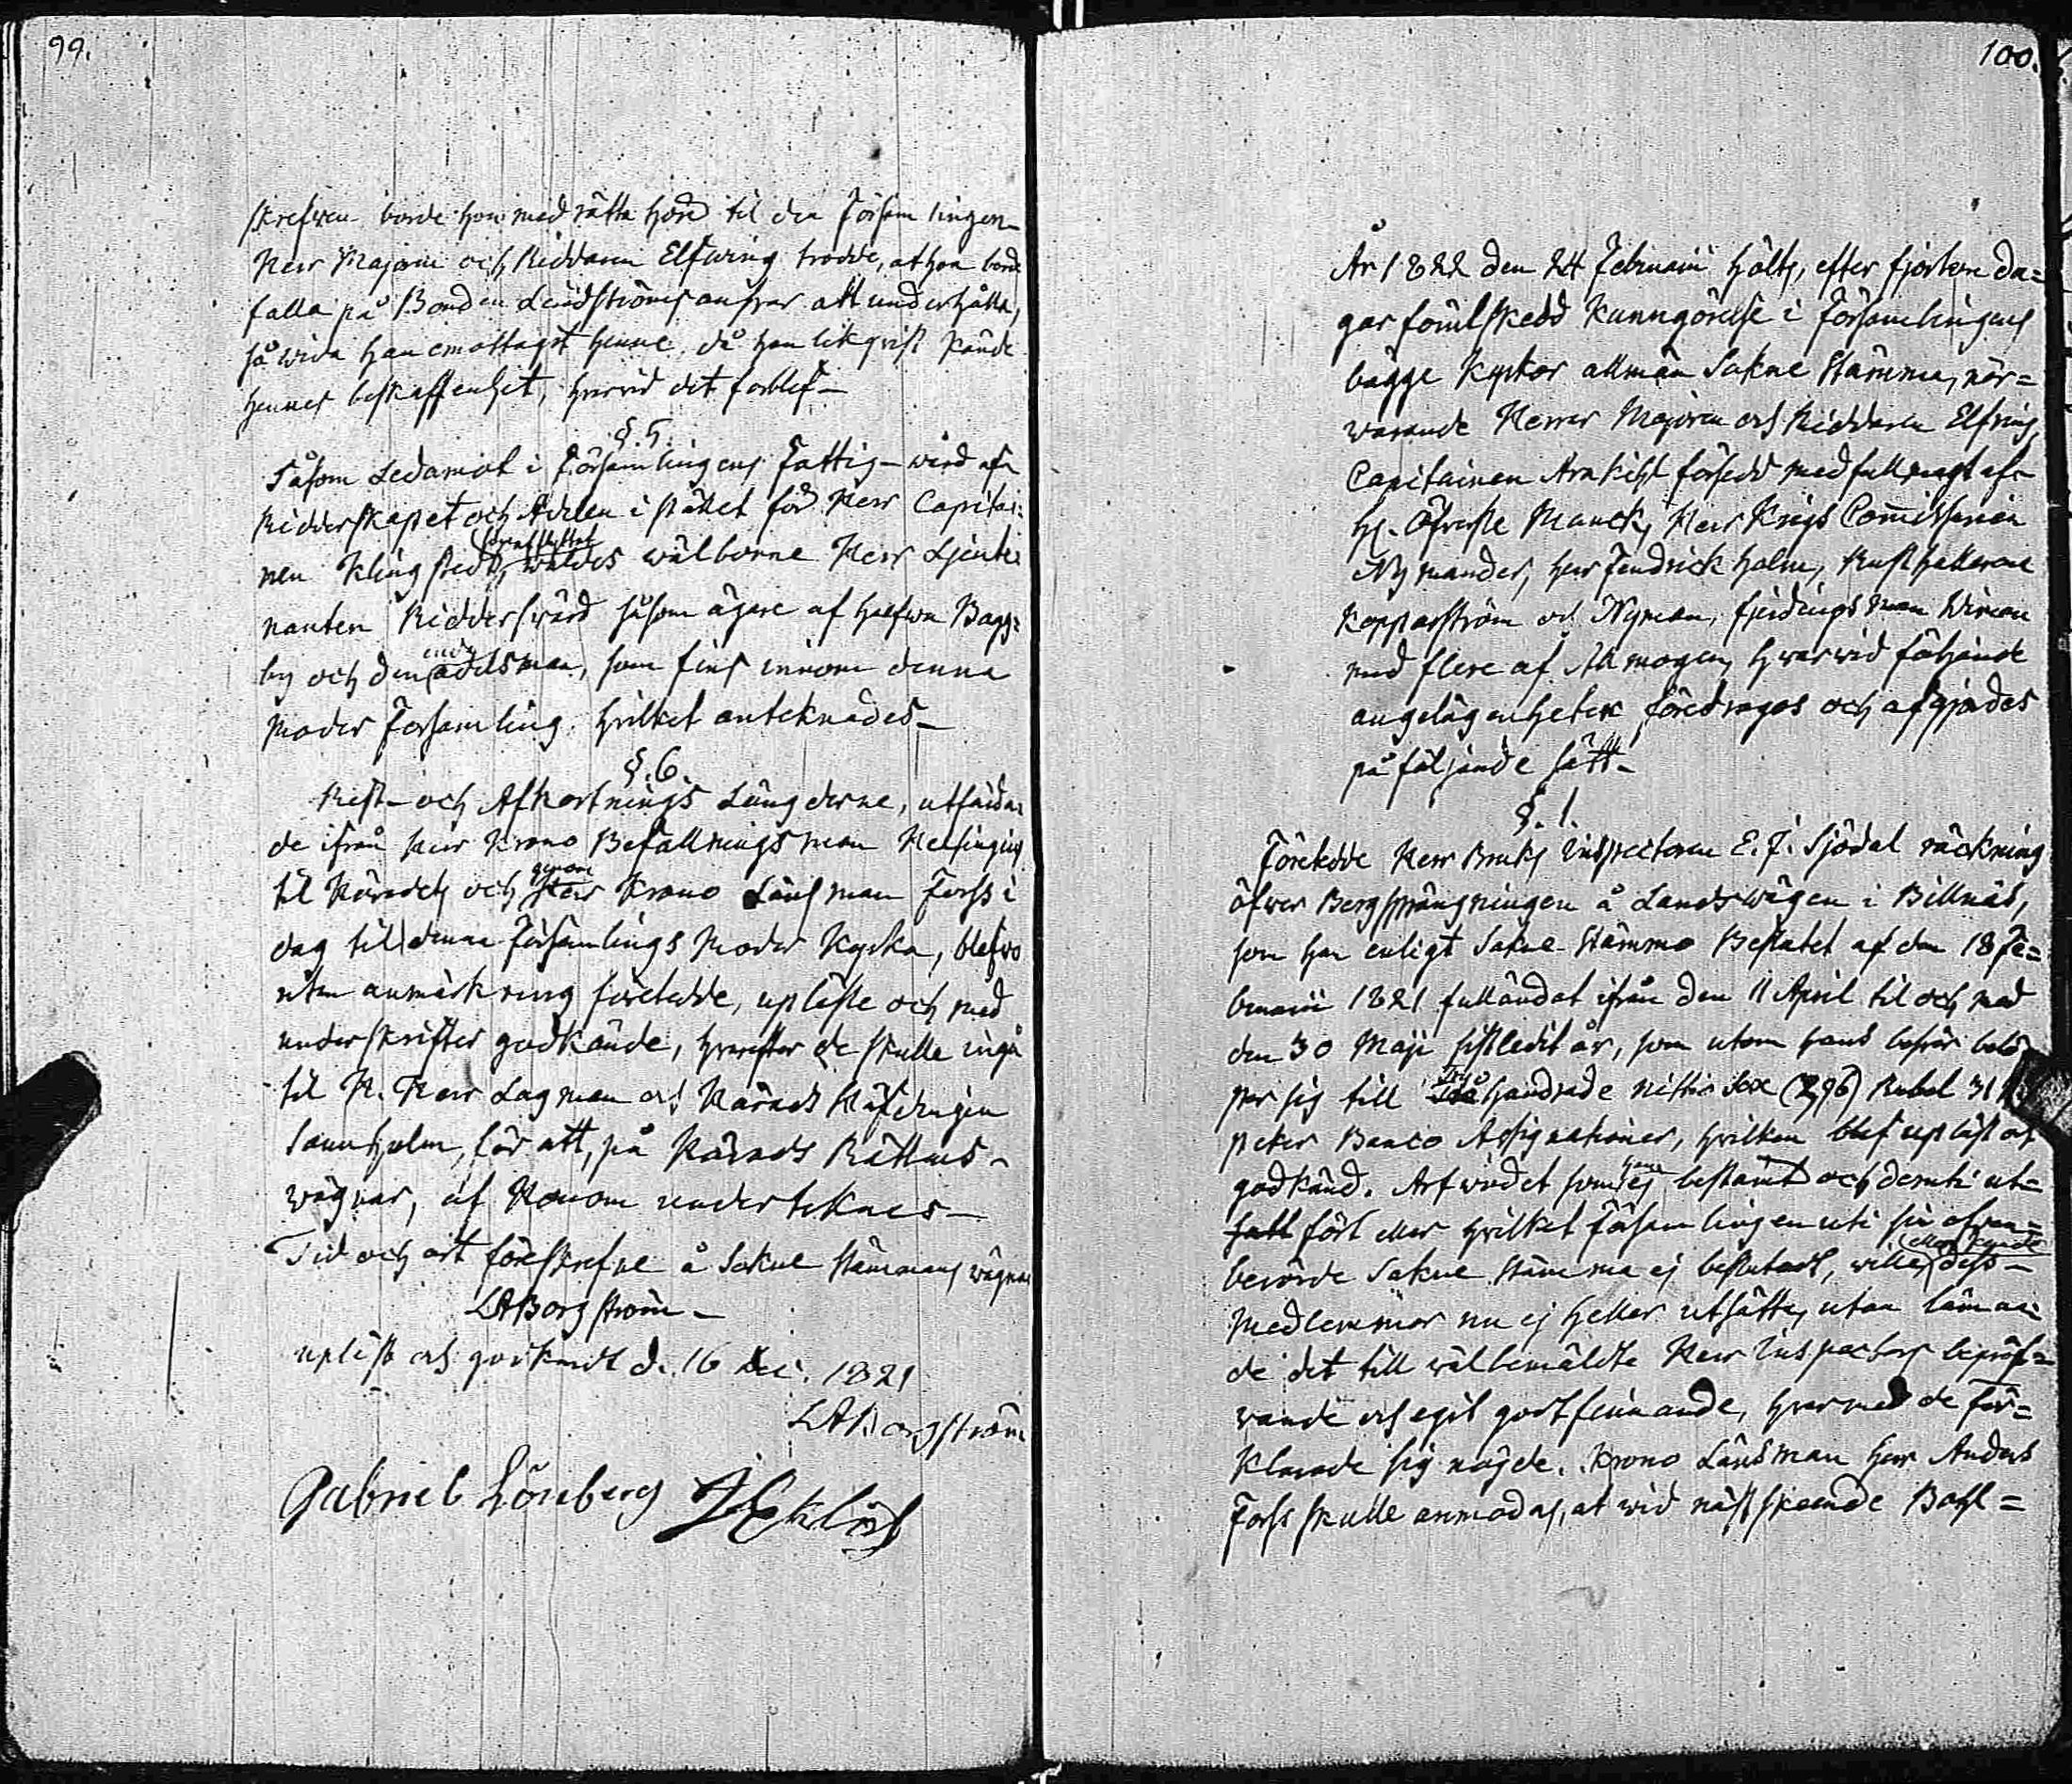 99.
skrefwen borde hon med rätta höra til den Församlingen
Herr Majoren och Riddaren Elfwing trodde, at hon borde
falla på Bonden Lindströms ansvar att underhålla,
så wida han emottagit henne, då han likgvist kände
hennes beskaffenhet, hvarvid det forblef_
§. 5.
Såsom Ledamot i Församlingens Fattig-wård af
Ridderskapet och Adelen i stället för Herr Capitai=
nen Klingstedt, waldes wälborne Herr Lieute
nanten Riddersvärd såsom ägare af halfwa Bagg=
by och den enda adelsman, som fins innom denna
Moder Forsamling hvilket anteknades_
§. 6.
Rest- och Afkortnings Längderne, utfärda
de ifrån Herr Krono Befallningsman Helsingius
til Härads och genom Herr Krono Länsman Forss i
dag til denne Församlings Moder Kyrka, blefwo
utan anmärkning företedde, upläste och med
underskrifter godkände, hvarefter de skulle ingå
til H. Herr Lagman och Härads Höfdingen
Sannholm, för att, på Härads Rättens
wägnar, af Honom underteknas_
Tid och ort föreskrefne å Sokne Stämmans wägnar
LABorgström_
upläst och godkändt d. 16 Dec. 1821
LABorgström
Gabriel Lönberg JEklöf
100.
År 1822 den 24 Februarii hölts, efter fjorton da=
gar förut skedd Kunngörelse i Församlingens
bägge Kyrkor allmän Sokne Stämma, när=
warande Herrar Majoren och Riddaren Elfving,
Capitainen Armkihl försedd med fullmagt af
H. Öfverste Munck, Herr Krigs Commissarien
Nymander, Herr Fendrick Holm, Rusthållarne
Kopparström och Nyman, fjerdingsman Wirman
med flere af Allmogen, hwarwid följande
angelägenheter föredrogos och afgjordes
på följande sätt_
§. 1.
Företedde Herr Bruks Inspectoren E. J. Sjödal räckning
öfwer Bergsprängningen å Landswägen i Billnäs,
som han enligt Sokne Stämmo Beslutet af den 18 Fe=
bruarii 1821 fulländat ifrån den 11 April til och med
den 30 Maji sistledit år, som utom hans besvär belö
per sig till Två hundrade nittio sex (296) Rubel 31
peker Banco Assignationer, hvilken blef upläst och
godkänd. Arfwodet som han ej bestämt och deruti ut=
fört eller hvilket Församlingen uti sin ofvan=
berörde Sokne Stämma ej beslutadt, wille eller kunde dess
Medlemmar nu ej heller utsätta, utan lämna=
de det till wälbemäldte Herr Inspectors bepröf=
wande och egit godtfinnande, hvarmed de för=
klarade sig nöjde. Krono Länsman Herr Anders
Forss skulle anmodas, at wid näst skeende Bohl=